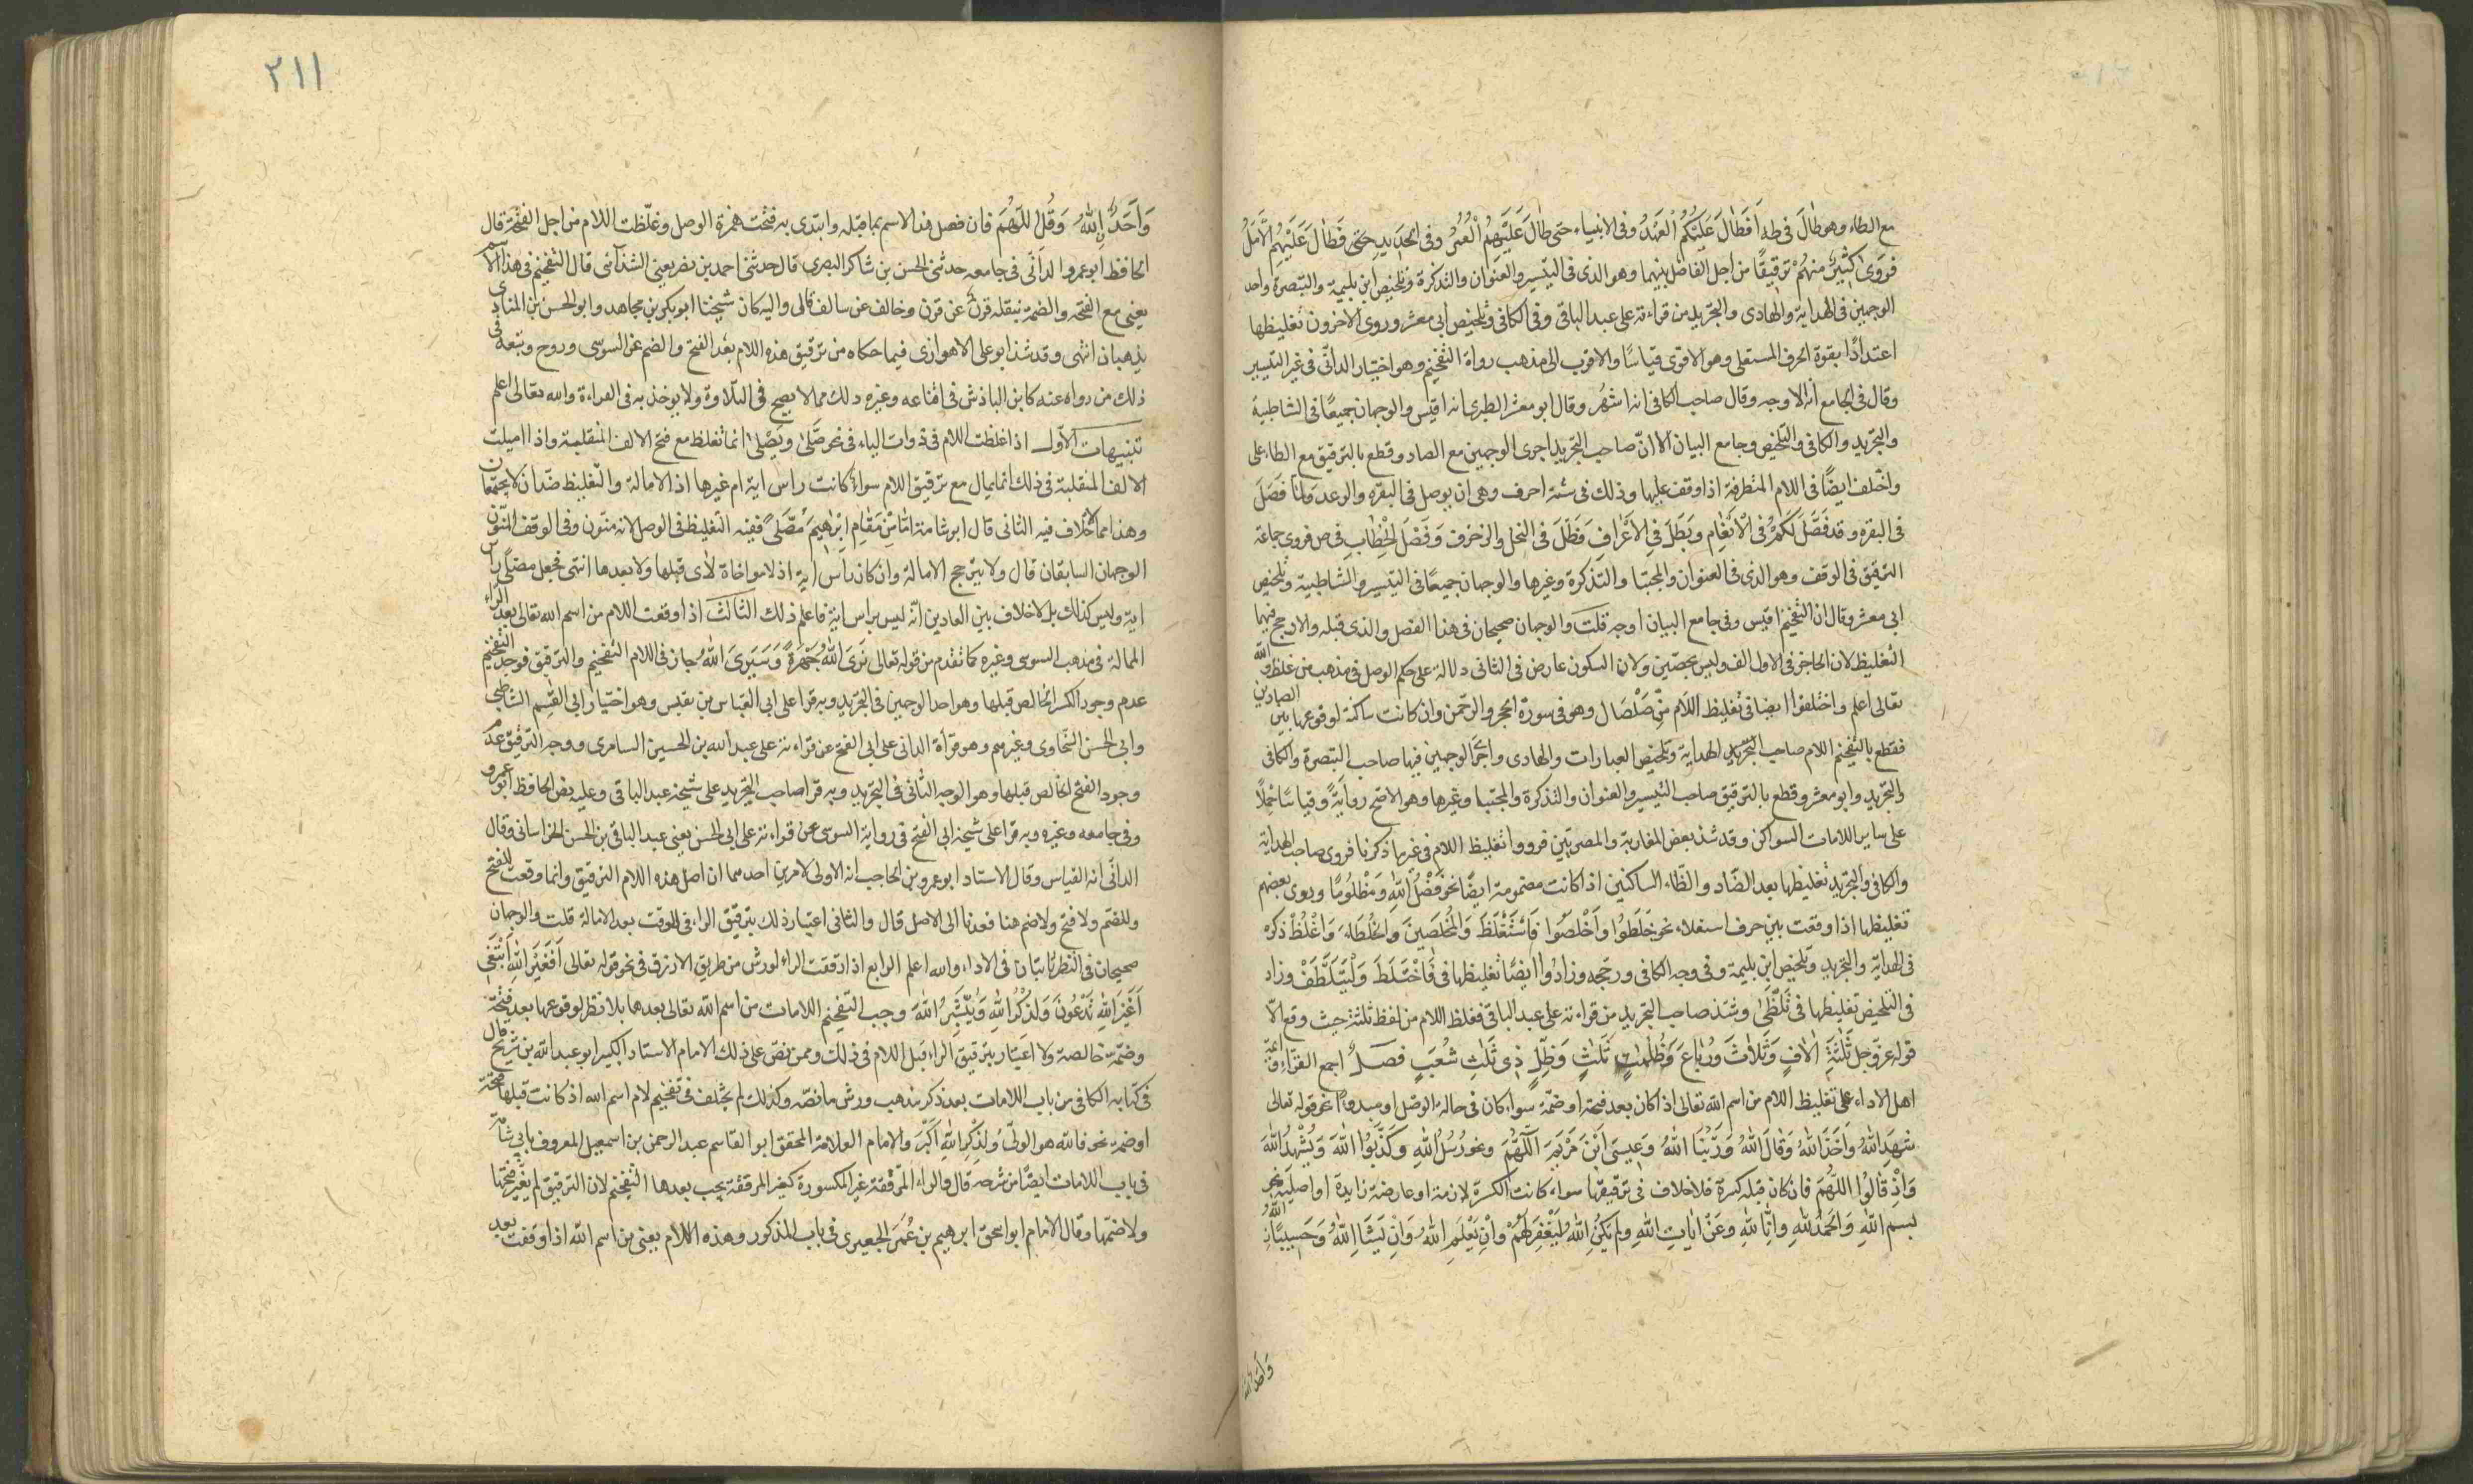 مع الطاء وهو طَالَ فى طه اَفَطَالَ عَلَيْكُمُ الْعَهْدُ وفى الانبياء حتى طَالَ عَلَيْهِمُ الْعُمُرُ وفى الحديد حتى فَطَالَ عَلَيْهِمُ الْاَمَدُ
فروى كثير منهم ترقيقًا من اجل الفاصل بينهما وهو الذى فى التيسير والعنوان والتذكرة وتلخيص ابن بليمة والتبصرة واحد
الوجهين فى الهداية والهادى والتجريد من قراءته على عبد الباقى وفى الكافى وتلخيص ابى معشر وروى الاخرون تغليظها
اعتدادًا بقوة الحرف المستعلى وهو الاقوى قياسًا والاقرب الى مذهب رواة التفخيم وهو اختيار الدانى فى غير التيسير
وقال فى الجامع انه الاوجه وقال صاحب الكافى انه اشهر وقال ابو معشر الطبرى انه اقيس والوجهان جميعًا فى الشاطبية
والتجريد والكافى والتلخيص وجامع البيان الا انّ صاحب التجريد اجرى الوجهين مع الصاد وقطع بالترقيق مع الطاء على
واختلف ايضًا فى اللام المتطرفة اذا وقف عليها وذلك فى ستة احرف وهى ان يوصل فى البقرة والرعد ولمّا فَصَلَ
فى البقرة وقد فَصَّلَ لَكُمْ فى الْاَنْعَامِ وَبَطَلَ فى الْاَعْرَافِ وظَلَّ فى النحل والزخرف وَفَصْلَ الْخِطَابِ فى ص فروى جماعة
الترقيق فى الوقف وهو الذى فى العنوان والمجتبا والتذكرة وغيرها والوجهان جميعًا فى التيسير والشاطبية وتلخيص
ابى معشر وقال ان التفخيم اقيس وفى جامع البيان اوجه قلت والوجهان صحيحان فى هذا الفصل والذى قبله والارجح فيهما
التغليظ لان الحاجز فى الاول الف وليس بحصين ولان السكون عارض فى الثانى دلالة على حكم الوصل فى مذهب من غلظ والله
تعالى اعلم واختلفوا ايضا فى تغليظ اللام مِن صَلْصَال وهو فى سورة الحجر والرحمن وان كانت ساكنة لوقوعها بين الصادين
فقطع بالتفخيم اللام صاحب الهداية وتلخيص العبارات والهادى واجرى الوجهين فيها صاحب التبصرة والكافى
والتجريد وابو معشر وقطع بالترقيق صاحب التيسير والعنوان والتذكرة والمجتبا وغيرها وهو الاصح رواية وقياسًا حملًا
على ساير اللامات السواكن وقد شذ بعض المغاربة والمصريين فرووا تغليظ اللام فى غير ما ذكرنا فروى صاحب الهداية
والكافى والتجريد تغليظها بعد الضاد والظاء الساكنين اذا كانت مضمومة ايضًا نحو فَضْلُ اللهِ وَمَظْلُومًا وروى بعضهم
تغليظها اذا وقعت بين حرف استعلاء نحو خَلَطُوا وَاَخْلَصُوا فَاسْتَغْلَظَ وَالْمُخْلَصِينَ وَالْخُلَطَاءِ وَاغْلُظْ ذكره
فى الهداية والتجريد وتلخيص ابن بليمة وفى وجه الكافى ورجحه وزادُوا ايضًا تغليظها فى فَاخْتَلَطَ وَلْيَتَلَطَّفْ وزاد
فى التلخيص تغليظها فى تَلَظّٰى وشذ صاحب التجريد من قراءته على عبد الباقى فغلظ اللام من لفظ ثلثة حيث وقع الّا
قوله عز وجل ثَلٰثَةِ اٰلافٍ وَثُلاٰثَ وَرُبَاعَ وَظُلُمَاتٍ ثَلٰثٍ وَظِلٍّ ذِى ثَلٰثِ شُعَبٍ فصل اجمع القراء وائمة
اهل الاداء على تغليظ اللام من اسم الله تعالى اذا كان بعد فتحة او ضمة سواء كان فى حالة الوصل او مبدوًا نحو قوله تعالى
شَهِدَ اللهُ وَاَخَذَ اللهُ وَقَالَ اللهُ وَرَبُّنَا اللهُ وَعِيسَى ابْنَ مَرْيَمَ اللّٰهُمَّ ونحو رُسُلُ اللهِ وَكَذَّبُوا اللهَ وَيُشْهِدُ اللهَ
وَاِذْ قَالُوا اللّٰهُمَّ فان كان قبله كسرة فلا خلاف فى ترقيقها سواء كانت الكسرة لازمة او عارضة زايدة او اصلية نحو
بسم اللهِ وَالحمدُ للهِ وانَّا للهِ وَعَنْ اٰيَاتِ اللهِ ولم يَكُنِ اللهُ لِيَغْفِرَ لَهُمْ وَاِنْ يَعْلَمِ اللهُ وَاِنْ يَشَإِ اللهُ وَحَسِيبًا اللهُ
وَاَحَدٌ اللهُ
وَاَحَدٌ اللهُ وَقُلِ اللّٰهُمَّ فان فصل هذا الاسم بما قبله وابتدى به فتحت همزة الوصل وغلّظت اللام من اجل الفتحة قال
الحافظ ابو عمرو الدانى فى جامعه حدثنى الحسن بن شاكر البصرى قال حدثنى احمد بن نصر يعنى الشذائى قال التفخيم فى هذا الاسم
يعنى مع الفتحة والضمة ينقله قرن عن قرن وخالف عن سالف قال واليه كان شيخنا ابو بكر بن مجاهد وابو الحسن بن المنادى
يذهبان انتهى وقد شذ ابو على الاهوازى فيما حكاه من ترقيق هذه اللام بعد الفتح والضم عن السوسى وروح وتبعه فى
ذلك من رواه عنه كابن الباذش فى اقناعه وغيره وذلك مما لا يصح فى التلاوة ولا يوخذ به فى القراءة والله تعالى اعلم
تنبيهات الاول اذا غلظت اللام فى ذوات الياء فى نحو صَلّٰى ويَصْلٰى انما تغلظ مع فتح الالف المنقلبة واذا اميلت
الالف المنقلبة فى ذلك انما يمال مع ترقيق اللام سواء كانت راس اية ام غيرها اذ الامالة والتغليظ ضدّان لا يجتمعان
وهذا مما لا خلاف فيه الثانى قال ابو شامة امّا مِنْ مَقَامِ اِبْرٰهِيمَ مُصَلًّى ففيه التغليظ فى الوصل لانه منون وفى الوقف المنون
الوجهان السابقان قال ولا يترجح الامالة وان كان راس اية اذ لا مواخاة لاى قبلها ولا بعدها انتهى فجعل مصلى راس
اية وليس كذلك بل لا خلاف بين العادين انّه ليس براس اية فاعلم ذلك الثالث اذا وقعت اللام من اسم الله تعالى بعد الراء
الممالة فى مذهب السوسى وغيره كما تقدم من قوله تعالى نَرَى اللهَ جَهْرَةً وَسَيَرَى اللهُ جاز فى اللام التفخيم والترقيق فوجه التفخيم
عدم وجود الكسر الخالص قبلها وهو احد الوجهين فى التجريد وبه قرا على ابى العباس بن نفيس وهو اختيار ابى القسم الشاطبى
وابى الحسن السخاوى وغيرهم وهو قراءة الدانى على ابى الفتح عن قراءته على عبد الله بن الحسين السامرى ووجه الترقيق عدم
وجود الفتح الخالص قبلها وهو الوجه الثانى فى التجريد وبه قرا صاحب التجريد على شيخه عبد الباقى وعليه نص الحافظ ابو عمرو
وفى جامعه وغيره وبه قرا على شيخه ابى الفتح فى رواية السوسى عن قراءته على ابى الحسن يعنى عبد الباقى بن الحسن الخراسانى وقال
الدانى انه القياس وقال الاستاد ابو عمرو بن الحاجب انه الاولى لامرين احدهما ان اصل هذه اللام الترقيق وانما وقعت للفتح
وللضم ولا فتح ولا ضم هنا فعدنا الى الاصل قال والثانى اعتبار ذلك بترقيق الراء فى الوقف بعد الامالة قلت والوجهان
صحيحان فى النظر ثابتان فى الاداء والله اعلم الرابع اذا رققت الراء لورش من طريق الازرق فى نحو قوله تعالى اَفَغَيْرَ اللهِ اَبْتَغِى
اَغَيْرَ اللهِ تَدْعُونَ وَلَذِكْرُ اللهِ وَيُبَشِّرُ اللهُ وجب التفخيم اللامات من اسم الله تعالى بعدها بلا نظر لوقوعها بعد فتحة
وضمّة خالصة ولا اعتبار بترقيق الراء قبل اللام فى ذلك وممن نصّ على ذلك الامام الاستاد الكبير ابو عبد الله بن شريح قال
فى كتابه الكافى من باب اللامات بعد ذكر مذهب ورش ما نصّه وكذلك لم يختلف فى تفخيم لام اسم الله اذ كانت قبلها فتحة
او ضمة نحو فالله هو الولىّ وَلَذِكْرُ اللهِ اَكْبَرُ والامام العلامة المحقق ابو القاسم عبد الرحمن بن اسمعيل المعروف بابى شامة
فى باب اللامات ايضًا من شرحه قال والراء المرققة غير المكسورة كغير المرققة يجب بعدها التفخيم لان الترقيق لم يغير فتحتها
ولا ضمتها وقال الامام ابو اسحق ابرهيم بن عُمَر الجعبرى فى باب المذكور وهذه اللام يعنى من اسم الله اذا وقفت بعد
٢١١